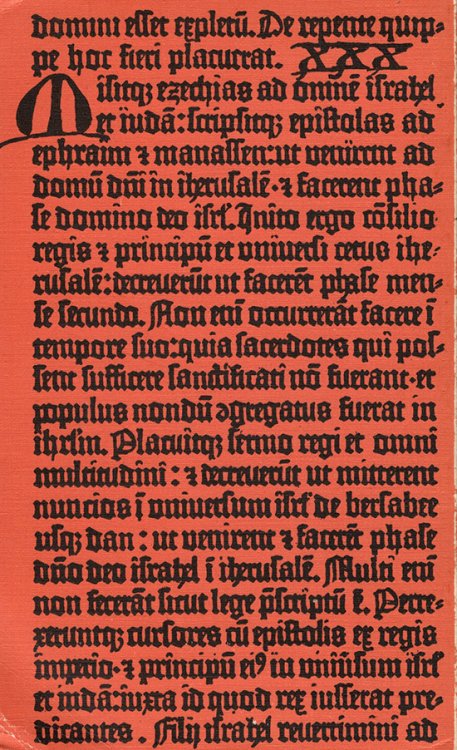 domini esset expletū. De repente quip=
pe hoc fieri placuerat. XXX
Misitq; ezechias ad omnē israhel
et iudā: scripsitq; epistolas ad
ephraim ⁊ manassen: ut venirent ad
domū dn̄i in iherusalē· ⁊ facerent pha=
se domino deo isrł. Inito ergo cōsilio
regis ⁊ principū et universi cetus ihe=
rusalē: decreverūt ut facerēt phase men=
se secundo. Non enī occurrerāt facere ī
tempore suo: quia sacerdotes qui pos=
sent sufficere sanctificati nō fuerant· et
populus nondū ↄgregatus fuerat in
ihrlm. Placuitq; sermo regi et omni
multitudini: ⁊ decreverūt ut mitterent
nuncios ī universum isrł de bersabee
usq; dan: ut venirent ⁊ facerēt phase
dn̄o deo israhel ī iherusalē. Multi enī
non fecerāt sicut lege p̄scriptū ē. Perre=
xeruntq; cursores cū epistolis ex regis
imperio· ⁊ principū eiꝰ in univ̄sum isrł
et iudā: iuxta id quod rex iusserat pre=
dicantes. Filij israhel revertimini ad